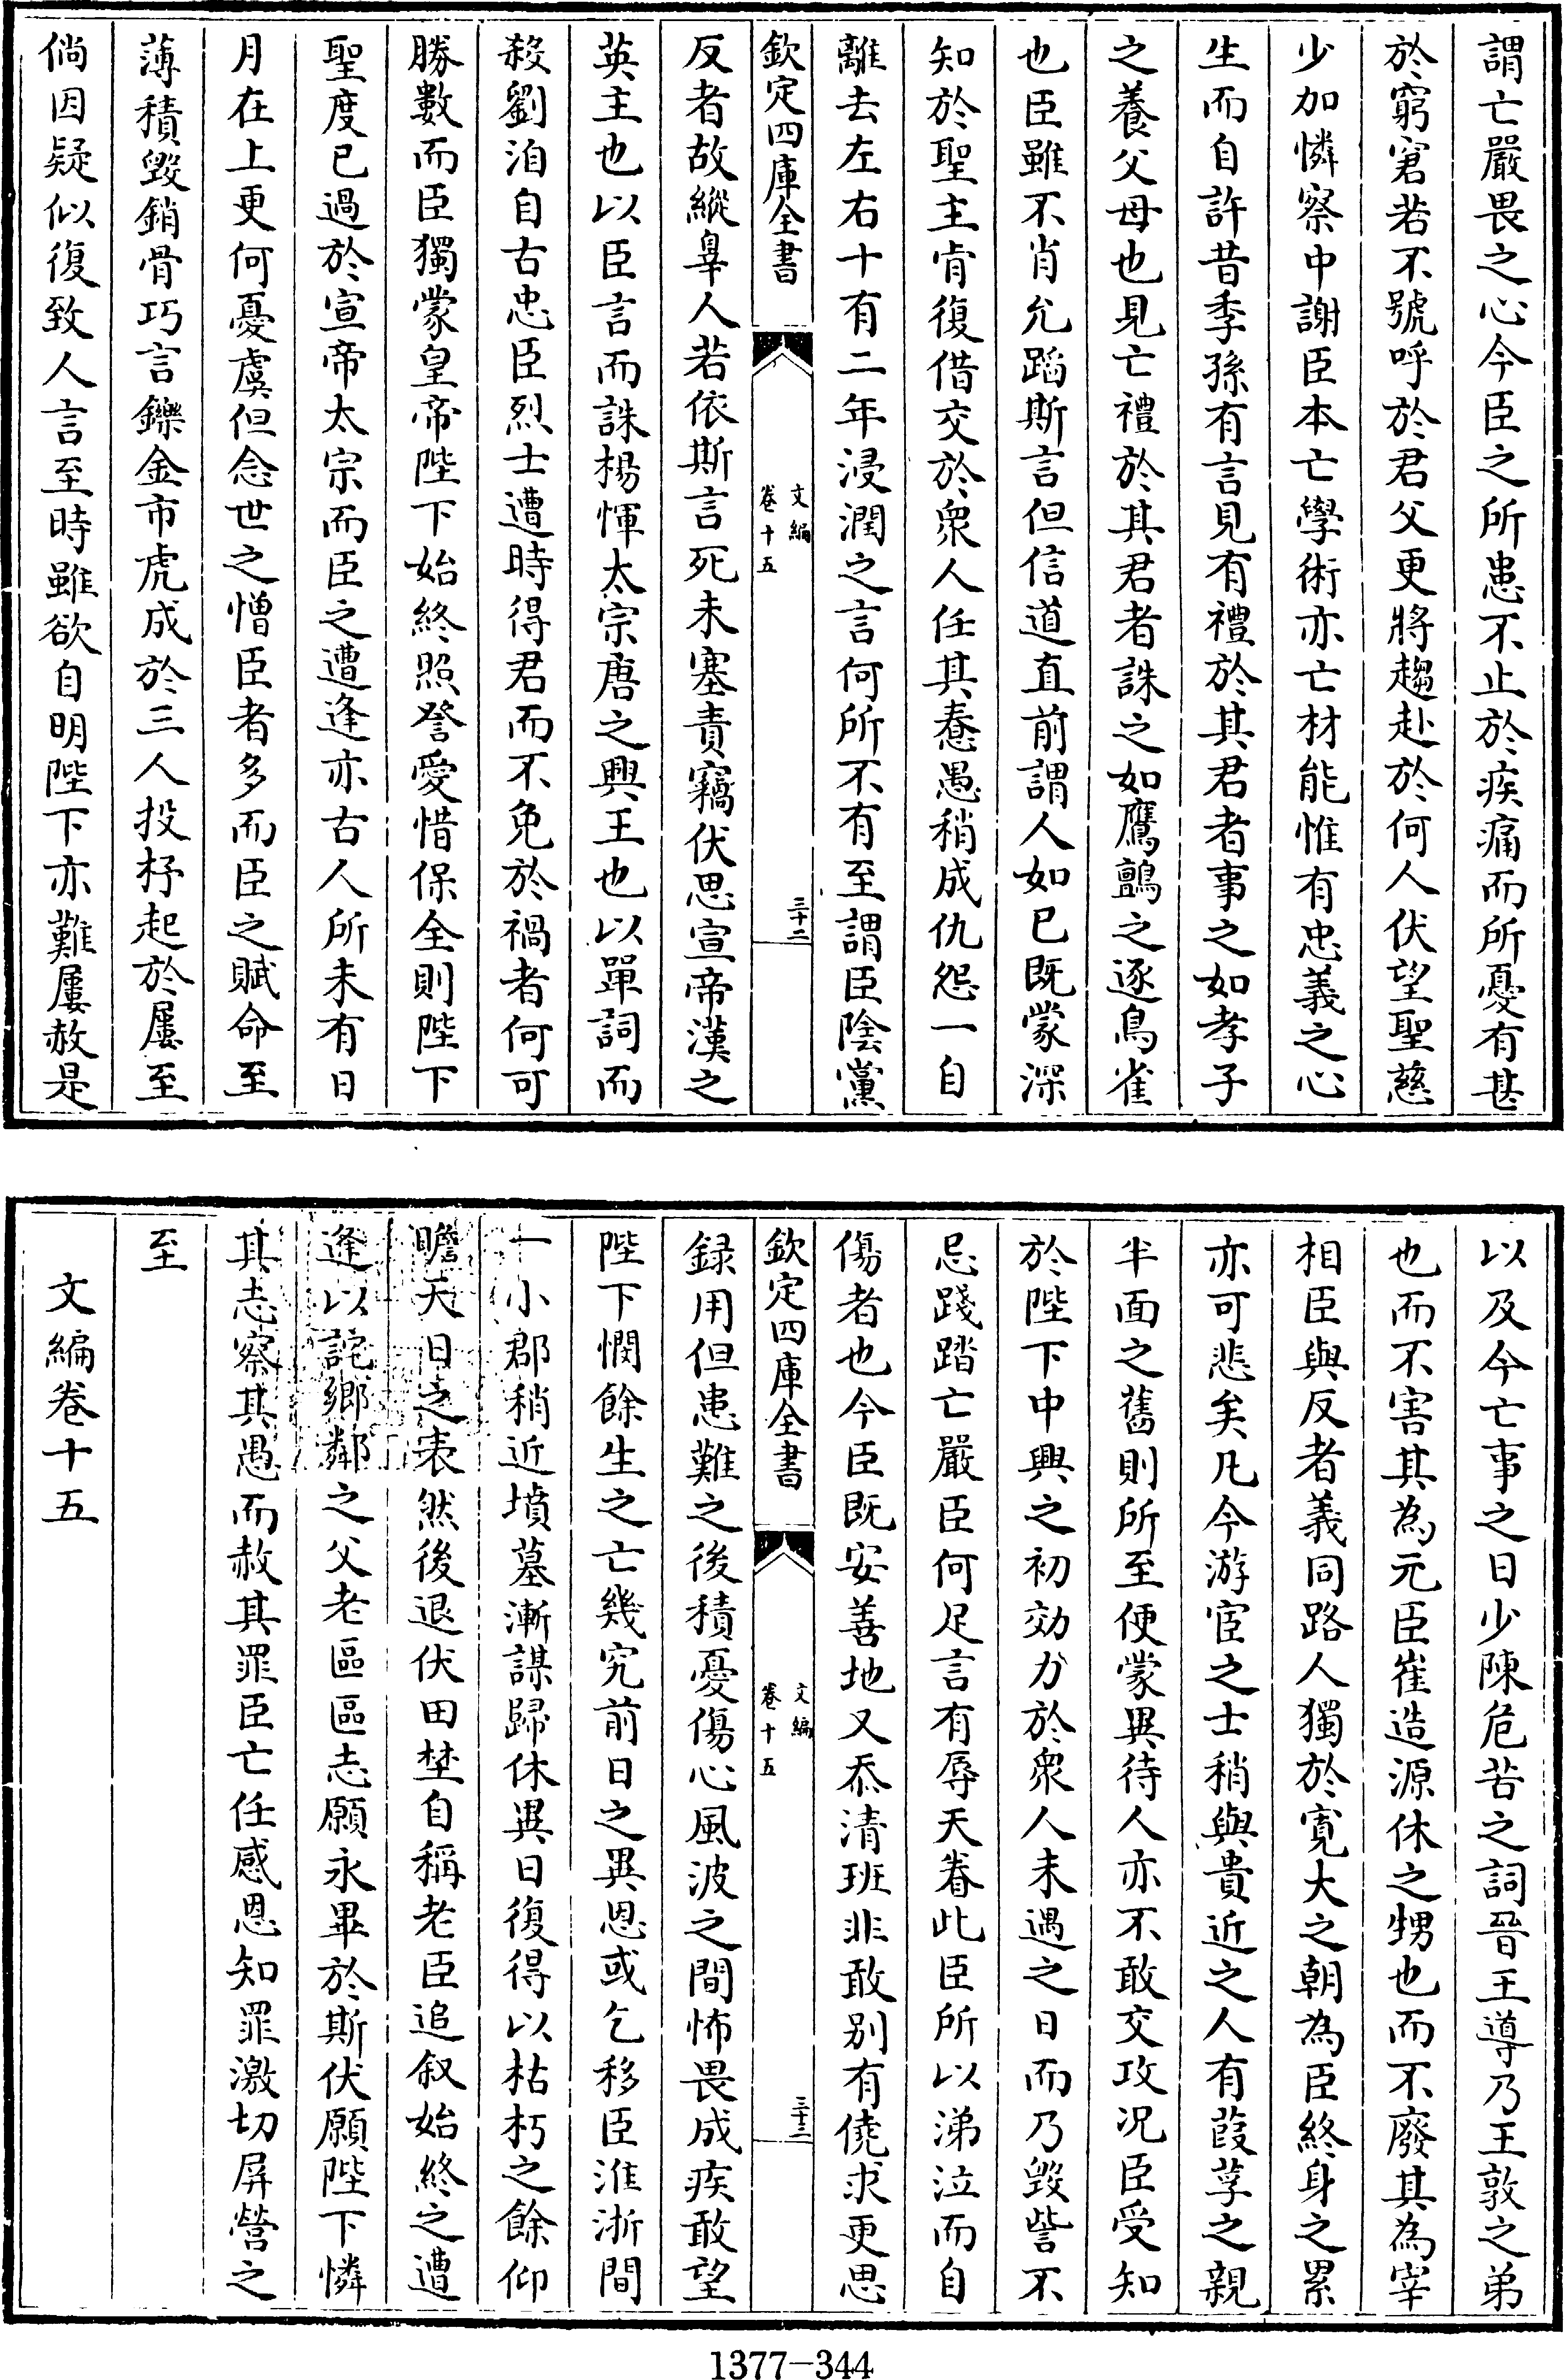 謂亡嚴畏之心今臣之所患不止於疾痛而所憂有甚
於窮窘若不號呼於君父更將趨赴於何人伏望聖慈
少加憐察中謝臣本亡學術亦亡材能惟有忠義之心
生而自許昔季孫有言見有禮於其君者事之如孝子
之養父母也見亡禮於其君者誅之如鷹鸇之逐鳥雀
也臣雖不肖允蹈斯言但信道直前謂人如已既蒙深
知於聖主肯復借交於衆人任其惷愚稍成仇怨一自
離去左右十有二年浸潤之言何所不有至謂臣陰黨
欽定四庫全書
文編
卷十五
三十二
反者故縱辠人若依斯言死未塞責竊伏思宣帝漢之
英主也以臣言而誅楊惲太宗唐之興王也以單詞而
殺劉洎自古忠臣烈士遭時得君而不免於禍者何可
勝數而臣獨蒙皇帝陛下始終照詧愛惜保全則陛下
聖度已過於宣帝太宗而臣之遭逢亦古人所未有日
月在上更何憂虞但念世之憎臣者多而臣之賦命至
薄積毀銷骨巧言鑠金市虎成於三人投杼起於屢至
倘因疑似復致人言至時雖欲自明陛下亦難屢赦是
以及今亡事之日少陳危苦之詞晉王導乃王敦之弟
也而不害其為元臣崔造源休之甥也而不廢其為宰
相臣與反者義同路人獨於寛大之朝為臣終身之累
亦可悲矣凡今游宦之士稍與貴近之人有葭莩之親
半面之舊則所至便蒙異待人亦不敢交攻况臣受知
於陛下中興之初効力於衆人未遇之日而乃毀訾不
忌踐踏亡嚴臣何足言有辱天眷此臣所以涕泣而自
傷者也今臣既安善地又忝清班非敢别有僥求更思
欽定四庫全書
文編
卷十五
三十三
録用但患難之後積憂傷心風波之間怖畏成疾敢望
陛下憫餘生之亡幾究前日之異恩或乞移臣淮浙間
一小郡稍近墳墓漸謀歸休異日復得以枯朽之餘仰
瞻天日之表然後退伏田埜自稱老臣追叙始終之遭
逢以詫鄉鄰之父老區區志願永畢於斯伏願陛下憐
其志察其愚而赦其罪臣亡任感恩知罪激切屏營之
至
文編卷十五
1377-344